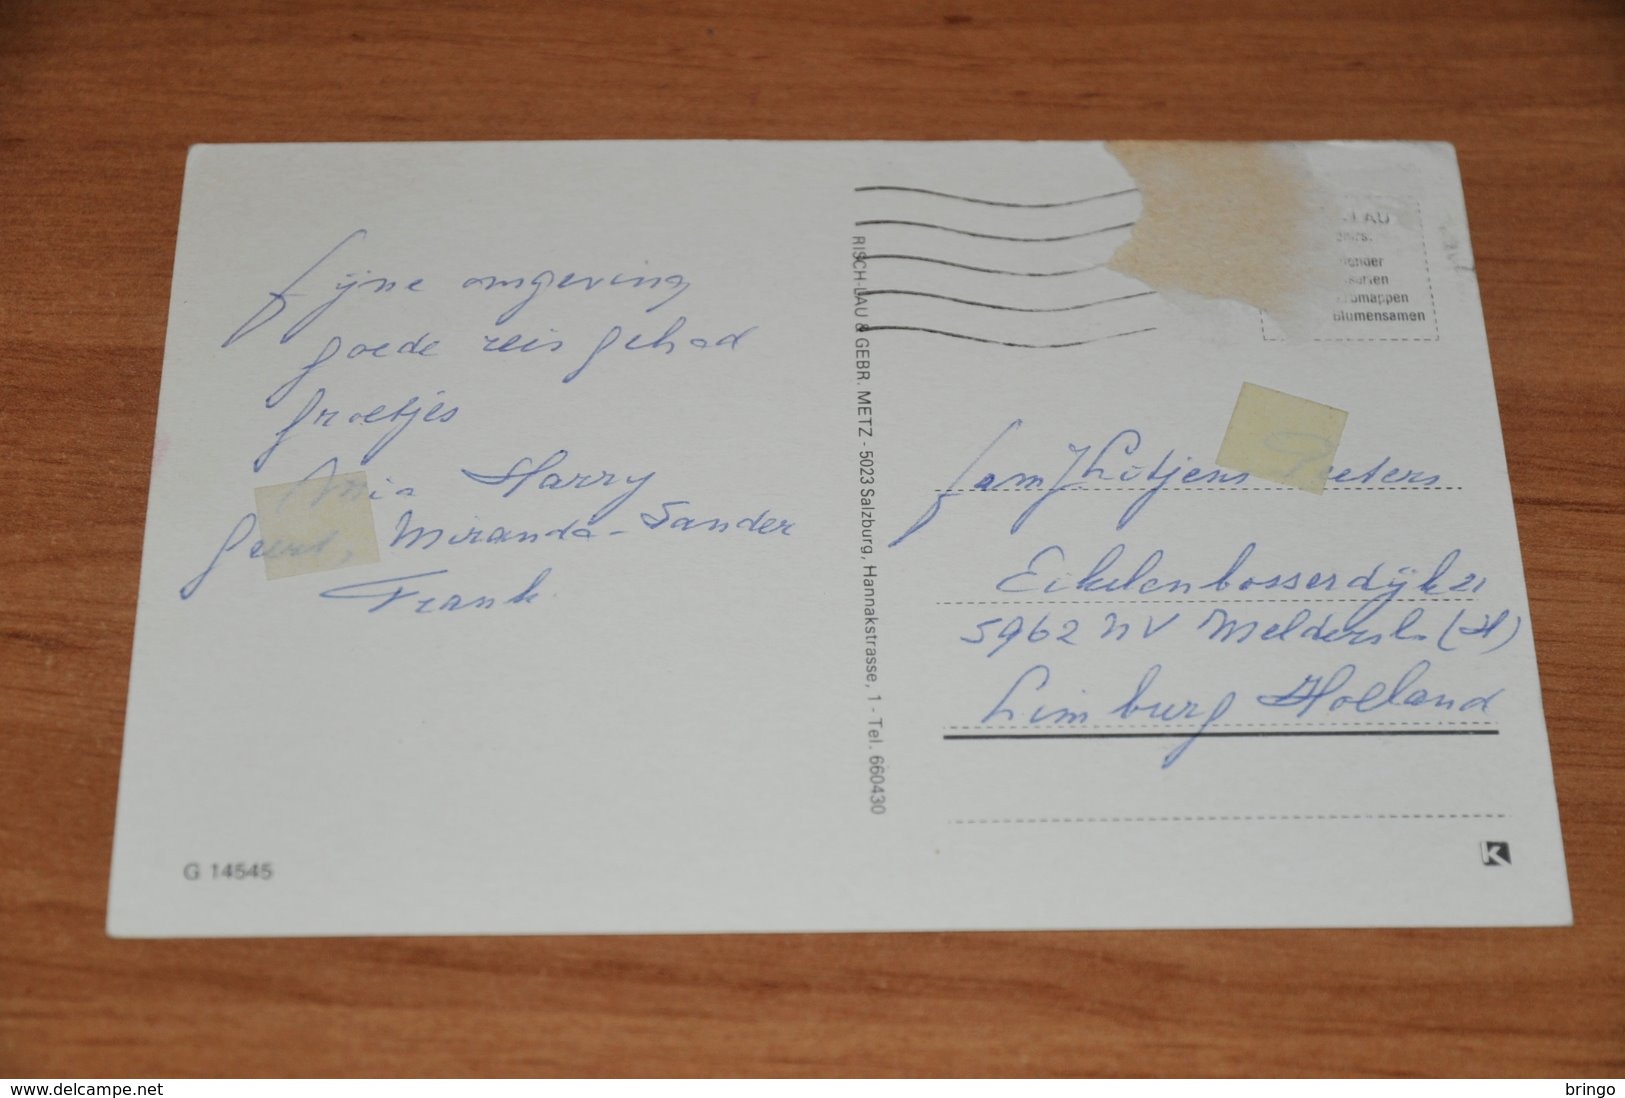 fijne omgeving
goede reis gehad
groetjes
Harry
Geert, Miranda - Sander
Frank
RISCH-LAU & GEBR. METZ - 5023 Salzburg, Hannakstrasse, 1 - Tel. 660430
LAU
Blumensamen
fam Peeters
Eikelenbosserdijk 21
5962 NV Melderslo (H)
Limburg Holland
G 14545
K
www.delcampe.net
bringo